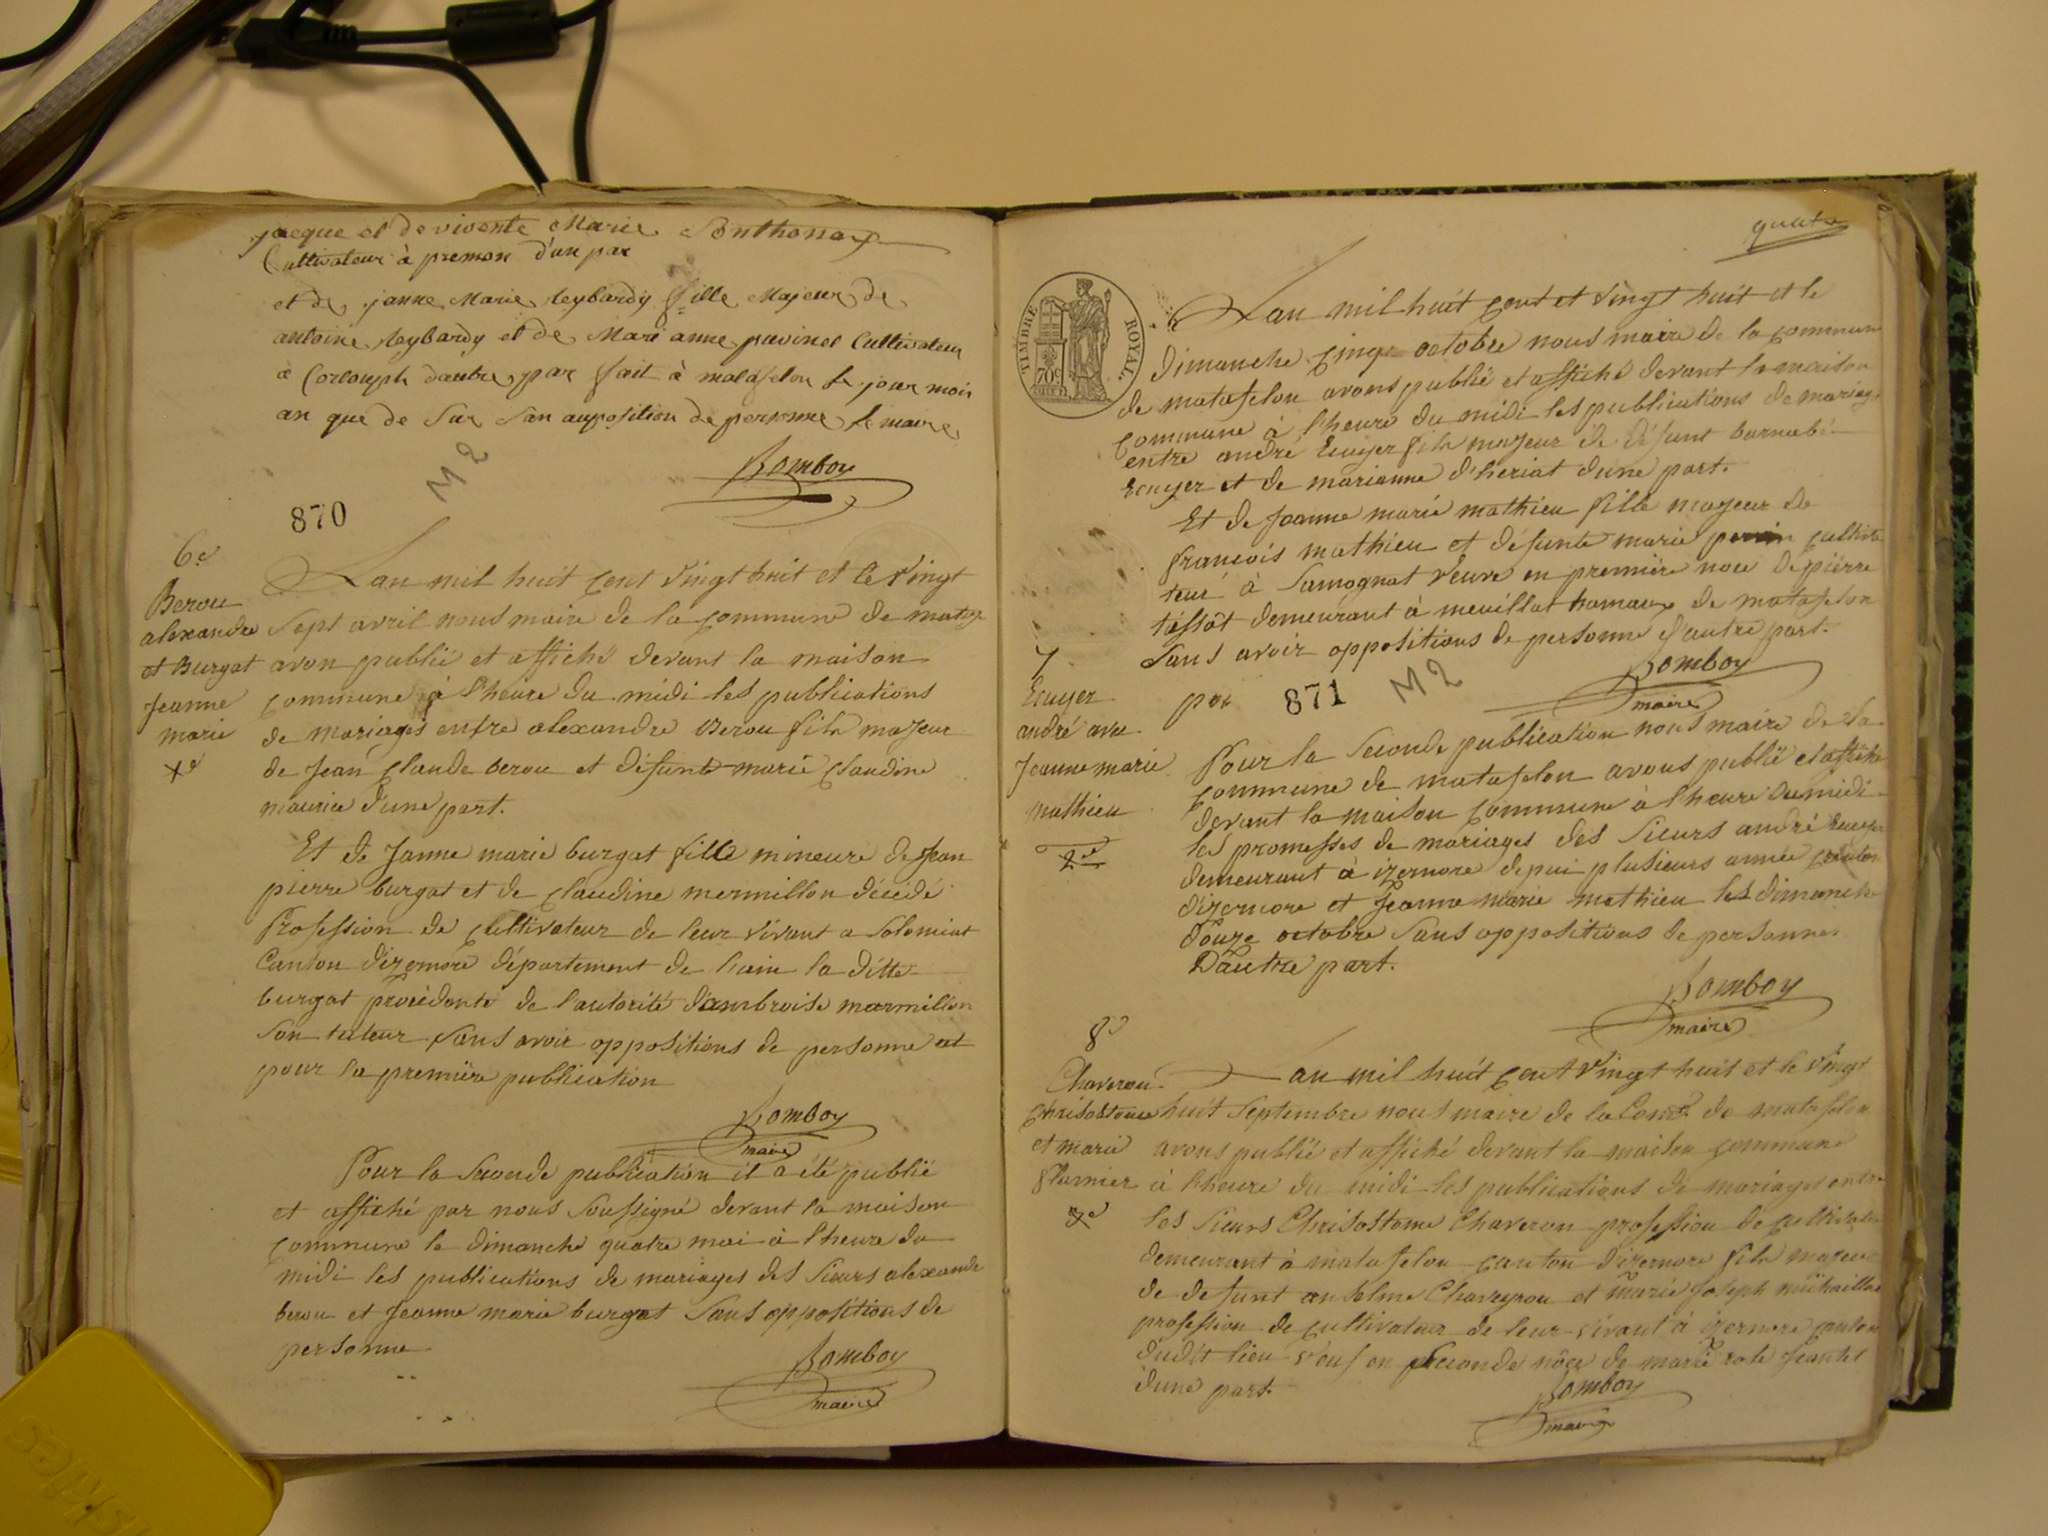 jacque et de vivente Marie Ponthonax
Cultivateur à premon d'un par
et de janne Marie Reybardy fille Majeur de
antoine Reybardy et de Mari anne pavinet Cultivateur
à Corlouph dautre par fait à matafelon le jour mois
an que de Sur San auposition de personne le maire
Bomboy
M 2
870
6e
Berou
alexandre
et Burgat
Jeanne
marie
Lan mil huit cent vingt huit et le vingt
sept avril nous maire de la commune de mataf
avon publié et affiché devant la maison
commune à l'heure du midi les publications
de mariages entre alexandre Berou fils majeur
de Jean Claude berou et défunte marie Claudine
maurice d'une part.
Et de Janne marie burgat fille mineure de Jean
pierre burgat et de Claudine mermillon décédé
Profession de Cultivateur de leur vivant a Solomiat
Canton dizernore département de lain la ditte
burgat procédente de l'autorité d'ambroise marmilion
son tuteur sans avoir oppositions de personne et
pour la première publication
Bomboy
maire
Pour la Seconde publication il a été publié
et affiché par nous Soussigné devant la maison
commune le dimanche quatre mai à l'heure du
midi les publications de mariages des Sieurs alexandre
berou et Jeanne marie burgat Sans oppositions de
personne
Bomboy
maire
quatre
TIMBRE ROYAL
70c
Lan mil huit cent et vingt huit et le
Dimanche cinq octobre nous maire de la commune
de matafelon avons publié et affiché devant la maison
commune à l'heure du midi les publications de mariage
entre andré Ecuyer fils majeur de défunt barnabé
Ecuyer et de marianne d'heriat dune part.
Et de Jeanne marie mathieu fille majeur de
François mathieu et défunte marie perrin cultiva
teur à Samognat veuve en première noce de pierre
tissot demeurant à meuillat hameaux de matafelon
Sans avoir oppositions de personne d'autre part.
Bomboy
maire
7
Ecuyer
andré avec
Jeanne marie
mathieu
2e
par
871
M 2
Pour la Seconde publication nous maire de la
commune de matafelon avons publié et affiché
devant la maison commune à l'heure du midi
les promesses de mariages des Sieurs andré Ecuyer
demeurant à izernore depui plusieurs année canton
dizernore et Jeanne marie mathieu les dimanche
douze octobre Sans oppositions de personnes
Dautre part.
Bomboy
maire
8e
Chaveron
Chrisostome
et marie
Lan mil huit cent vingt huit et le vingt
huit Septembre nous maire de la Come de matafelon
avons publié et affiché devant la maison commune
à l'heure du midi les publications de mariages entre
les Sieurs Chrisostome Chaveron profession de cultivateur
demeurant à matafelon canton dizernore fils majeur
de defunt anselme Chaveyrou et marie Joseph
profession de cultivateur de leur vivant à izernore canton
dudit lieu veuf en Seconde nôce de marie
dune part.
Bomboy
maire